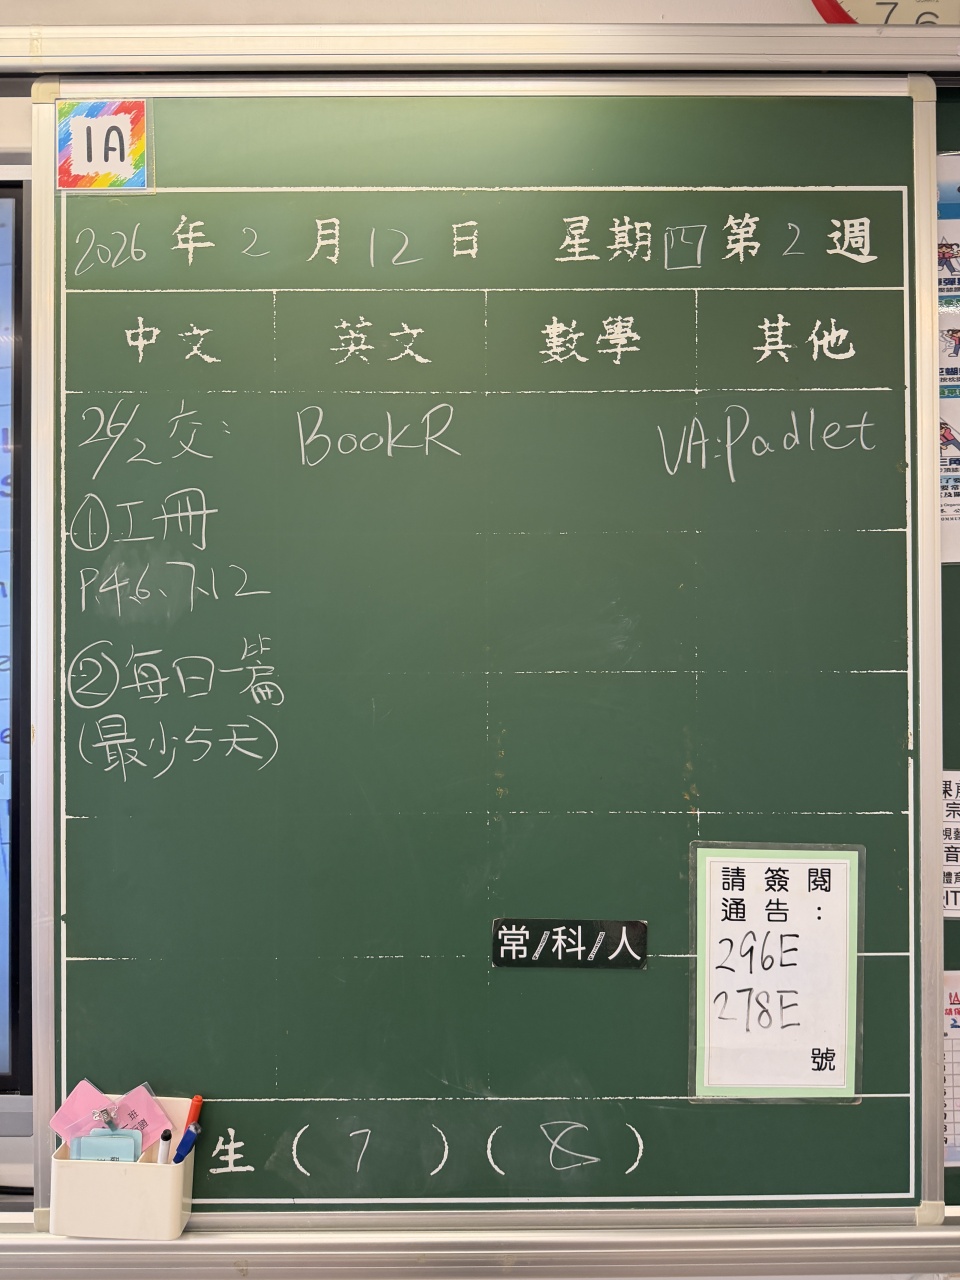 7 6
1A
2026 年 2 月 12 日 星期四 第 2 週
中文 英文 數學 其他
26/2 交:
BookR
VA:Padlet
①工冊
P.4,6、7、12
②每日一篇
(最少5天)
常/科/人
請簽閱
通告:
296E
278E
號
生 ( 7 ) ( 8 )